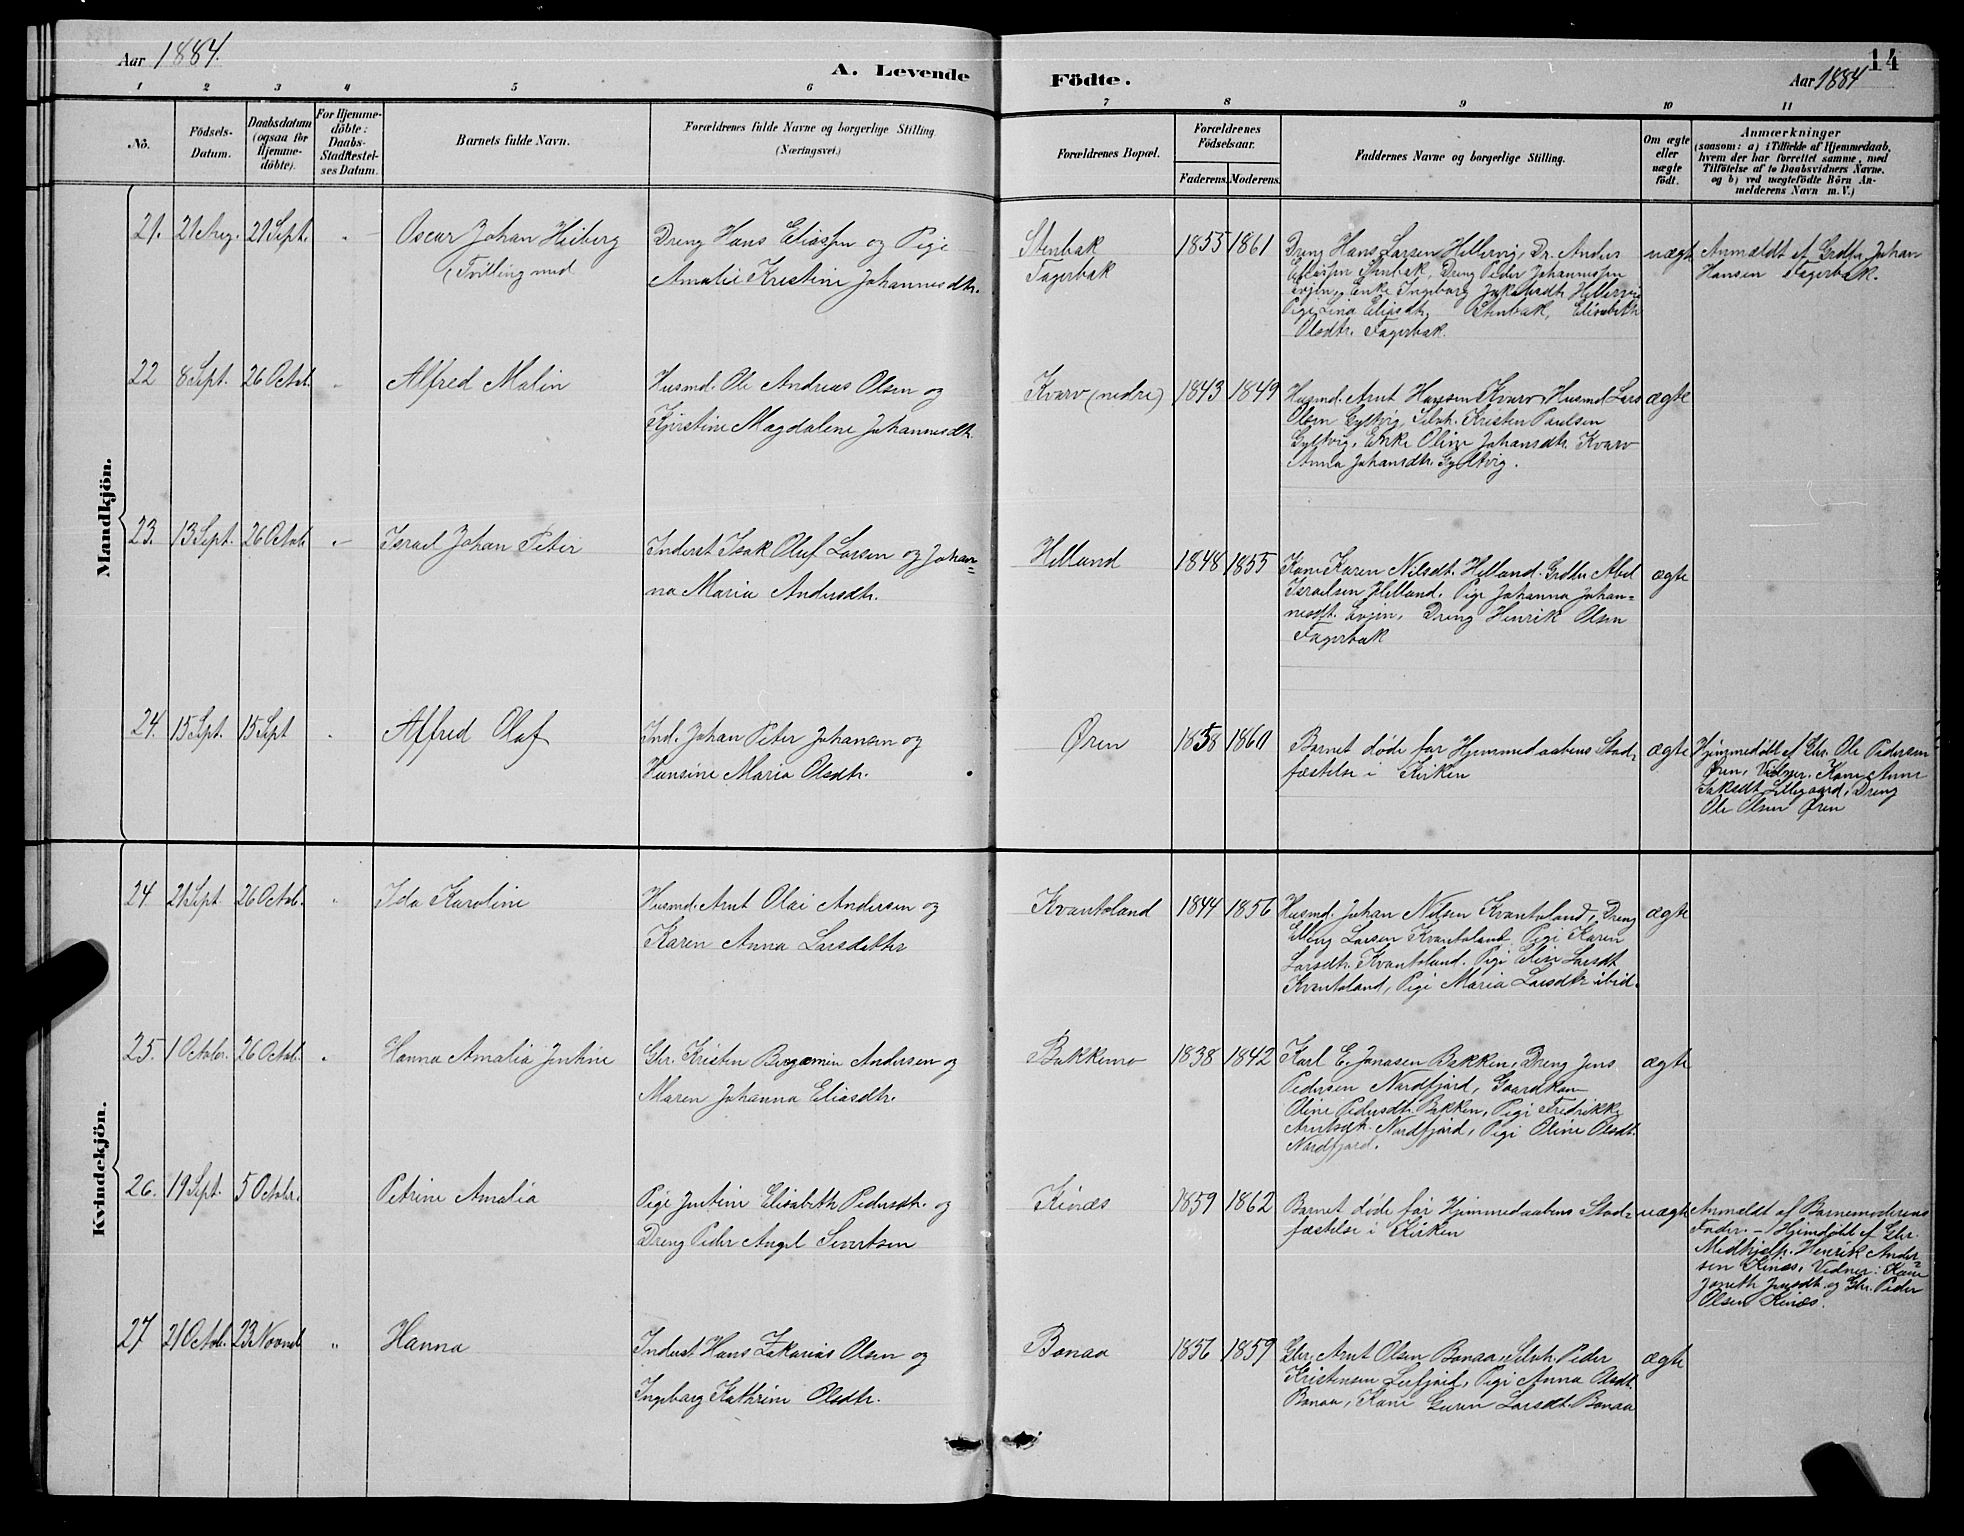 Aar 1884.
A. Levende
Födte.
14
Aar 1884
1 2 3 4 5 6 7 8 9 10 11
Nö.
Födsels-Datum.
Daabsdatum (ogsaa for Hjemme-döbte).
For Hjemme-döbte: Daabs-Stadfæstel-ses Datum.
Barnets fulde Navn.
Forældrenes fulde Navne og borgerlige Stilling. (Næringsvei.)
Forældrenes Bopæl.
Forældrenes Födselsaar.
Faderens. Moderens.
Faddernes Navne og borgerlige Stilling.
Om ægte eller uægte födt.
Anmærkninger
(saasom: a) i Tilfælde af Hjemmedaab,
hvem der har forrettet samme, med
Tilföielse af to Daabsvidners Navne.
og b) ved uægtefödte Börn An-
melderens Navn m. V.)
Mandkjön.
21. 21 Aug. 21 Sept. Oscar Johan Heiberg
(Tvilling med
Dreng Hans Eliassen og Pige
Amalie Kristine Johannesdtr.
Stenbak
Fagerbak
1855 1861
Dreng Hans Larsen Hellervig, Dr. Anders
Eliassen Stenbak, Dreng Peder Johannessen
Evjen, Enke Ingeborg Jakobsdtr. Hellervig
Pige Lina Eliasdtr. Stenbak, Elisabeth
Olsdtr. Fagerbak.
uægte
Anmeldt af Grdbr. Johan
Hansen Fagerbak.
22 8 Sept. 26 Octob. Alfred Malin
Husmd. Ole Andreas Olsen og
Kjerstine Magdalene Johannesdtr.
Kvarv (nedre)
1843 1849
Husmd. Arnt Hansen Kvarv, Husmd. Lars
Olsen Gyltvig, Selvh. Kristen Paulsen
Gyltvig, Enke Oline Johansdtr. Kvarv
Anna Johansdtr. Gyltvig.
ægte
23. 13 Sept. 26 Octob. Israel Johan Peter
Inderst Isak Oluf Larsen og Johan=
na Maria Andersdtr.
Helland
1848 1855
Kone Karen Nilsdt. Helland. Grdbr. Abel
Israelsen Helland. Pige Johanna Johan=
nesdt. Evjen, Dreng Henrik Olsen
Fagerbak
ægte
24. 15 Sept. 15 Sept Alfred Olaf
Ind. Johan Peter Johansen og
Hansine Maria Olsdtr.
Øren
1858 1860
Barnet døde før Hjemmedaabens Stad=
fæstelse i Kirken
ægte
Hjemmedøbt af Gbr. Ole Pedersen
Øren, Vidner. Kone Anne
Lillegaard, Dreng
Ole Olsen Øren
Kvindekjön.
24 21 Sept. 26 Octob. Ida Karoline
Husmd. Arnt Olai Andersen og
Karen Anna Larsdatter
Kvantoland
1844 1856
Husmd. Johan Nilsen Kvantoland, Dreng
Elling Larsen Kvantoland. Pige Karen
Larsdtr. Kvantoland. Pige Elen Larsdt.
Kvantoland, Pige Maria Larsdtr ibid.
ægte
25. 1 Octobr. 26 Octob. Hanna Amalia Jentine
Gbr. Kristen Benjamin Andersen og
Maren Johanna Eliasdtr.
Bakkemo
1838 1842
Karl E. Jonasen Bakken, Dreng Jens
Pedersen Nordfjord, Gaardkone
Oline Pedersdtr. Bakken, Pige Fredrikke
Arntsdtr. Nordfjord, Pige Oline Olsdt.
Nordfjord.
ægte
26. 19 Sept. 5 Octobr. Petrine Amalia
Pige Jentine Elisabeth Pedersdtr. og
Dreng Peder Angel Sivertsen
Kinæs
1859 1862
Barnet døde før Hjemmedaabens Stad=
fæstelse i Kirken
uægte
Anmeldt af Barnemoderens
Fader. - Hjemdøbt af Gbr.
Medhjelp. Henrik Ander=
sen Kinæs, Vidner: Kone
Jensdt. og Gbr. Peder
Olsen Kinæs.
27 21 Octob. 23 Novmb " Hanna
Inderst Hans Zakarias Olsen og
Ingeborg Kathrine Olsdtr.
Bonaa
1856 1859
Gbr. Arnt Olsen Bonaa, Selvh. Peder
Kristensen Leifjord, Pige Anna Olsdt.
Bonaa, Kone Guren Larsdt. Bonaa
ægte